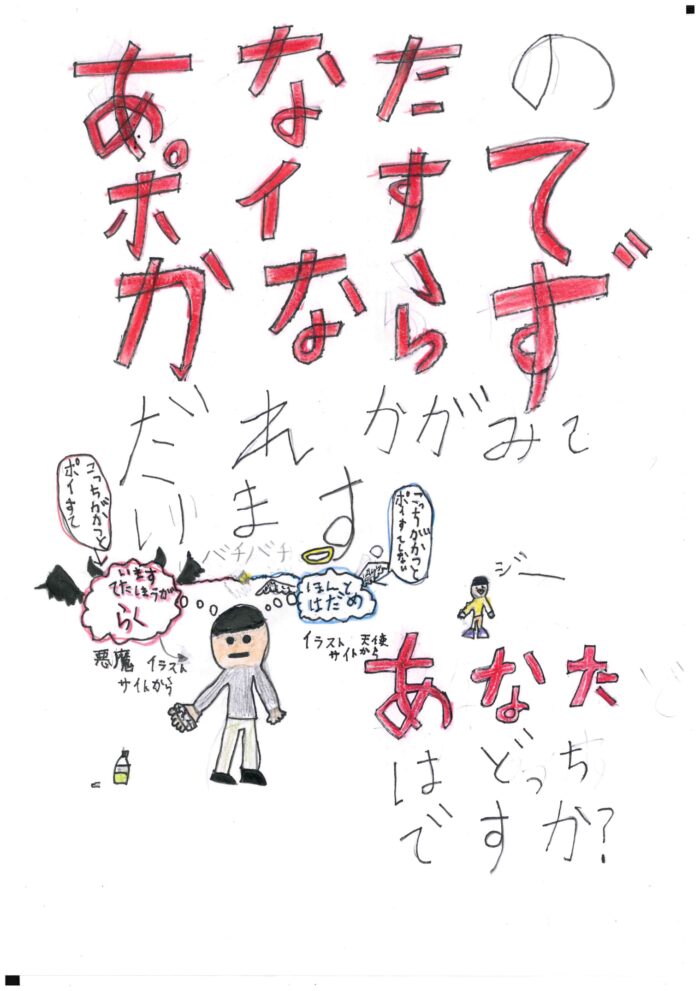 あなたの
ポイすて
かならず
だれかがみて
います
こっちがかつと
ポイすて
こっちがかつと
ポイすてしない
バチバチ
います
てたほうが
らく
ほんと
はだめ
ジー
悪魔
イラスト
サイトから
イラスト 天使
サイト から
あなた
はどっち
ですか?